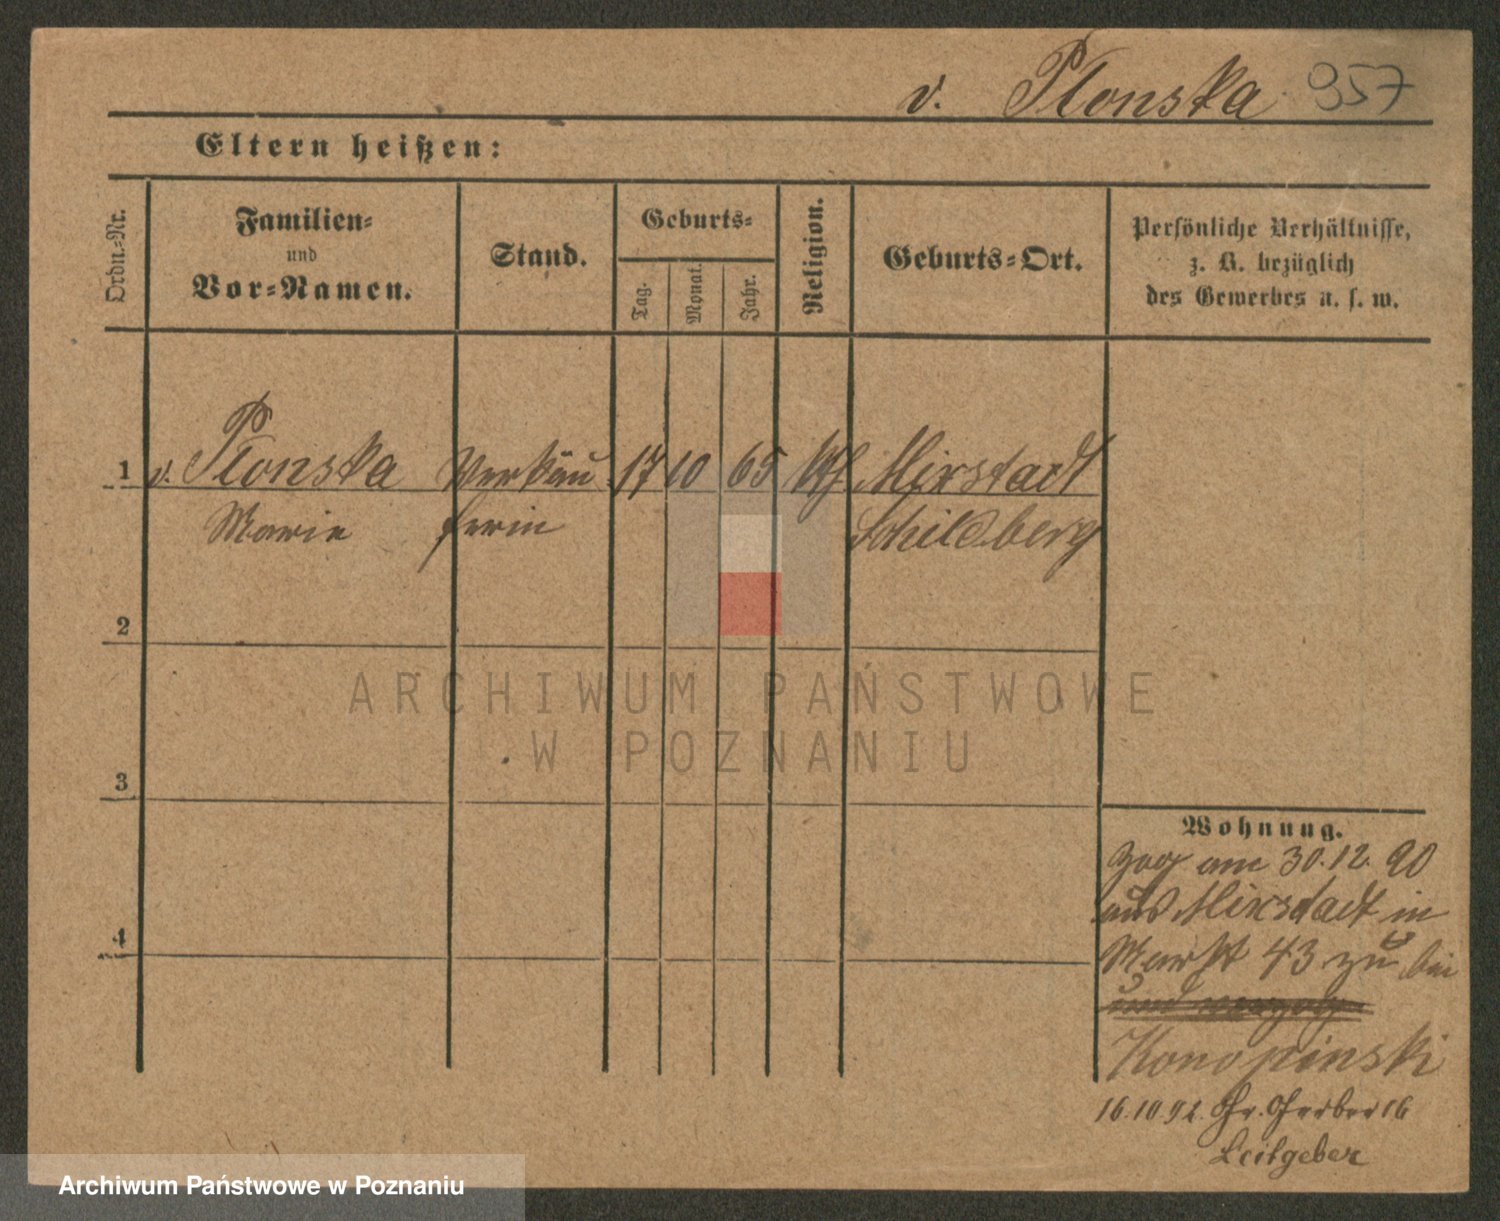 v. Plonska 957
Eltern heißen:
Ordn.=Nr.
Familien=
und
Vor=Namen.
Stand.
Geburts=
Tag.
Monat.
Jahr.
Religion.
Geburts=Ort.
Persönliche Verhältnisse,
z. B. bezüglich
des Gewerbes u. s. w.
1 v. Plonska Verkäu 17 10 65 kth Mixstadt
Marie ferin Schildberg
2
3
4
Wohnung.
Zog am 30.12.90
aus Mixstadt in
Markt 43 zu bei
und verzog
Konopinski
16.10.92. Gr. Gerber 16
Leitgeber
ARCHIWUM PAŃSTWOWE
W POZNANIU
Archiwum Państwowe w Poznaniu